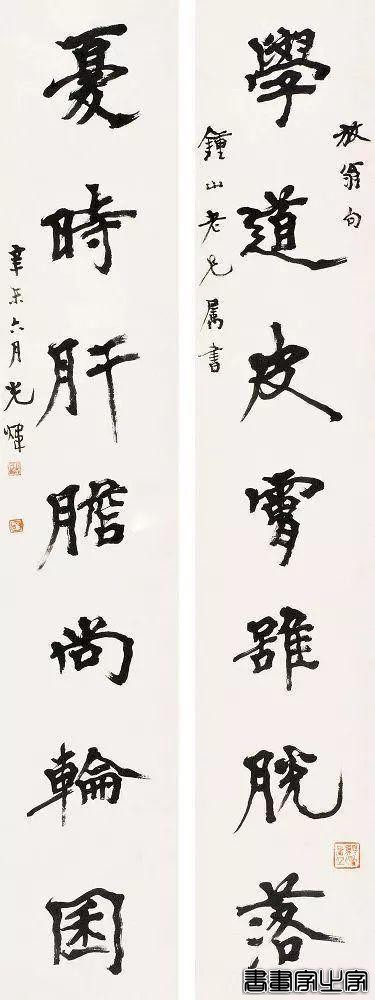 放翁句
學道皮膚雖脫落
鍾山老兄屬書
憂時肝膽尚輪囷
辛未六月光煒
書畫家之家